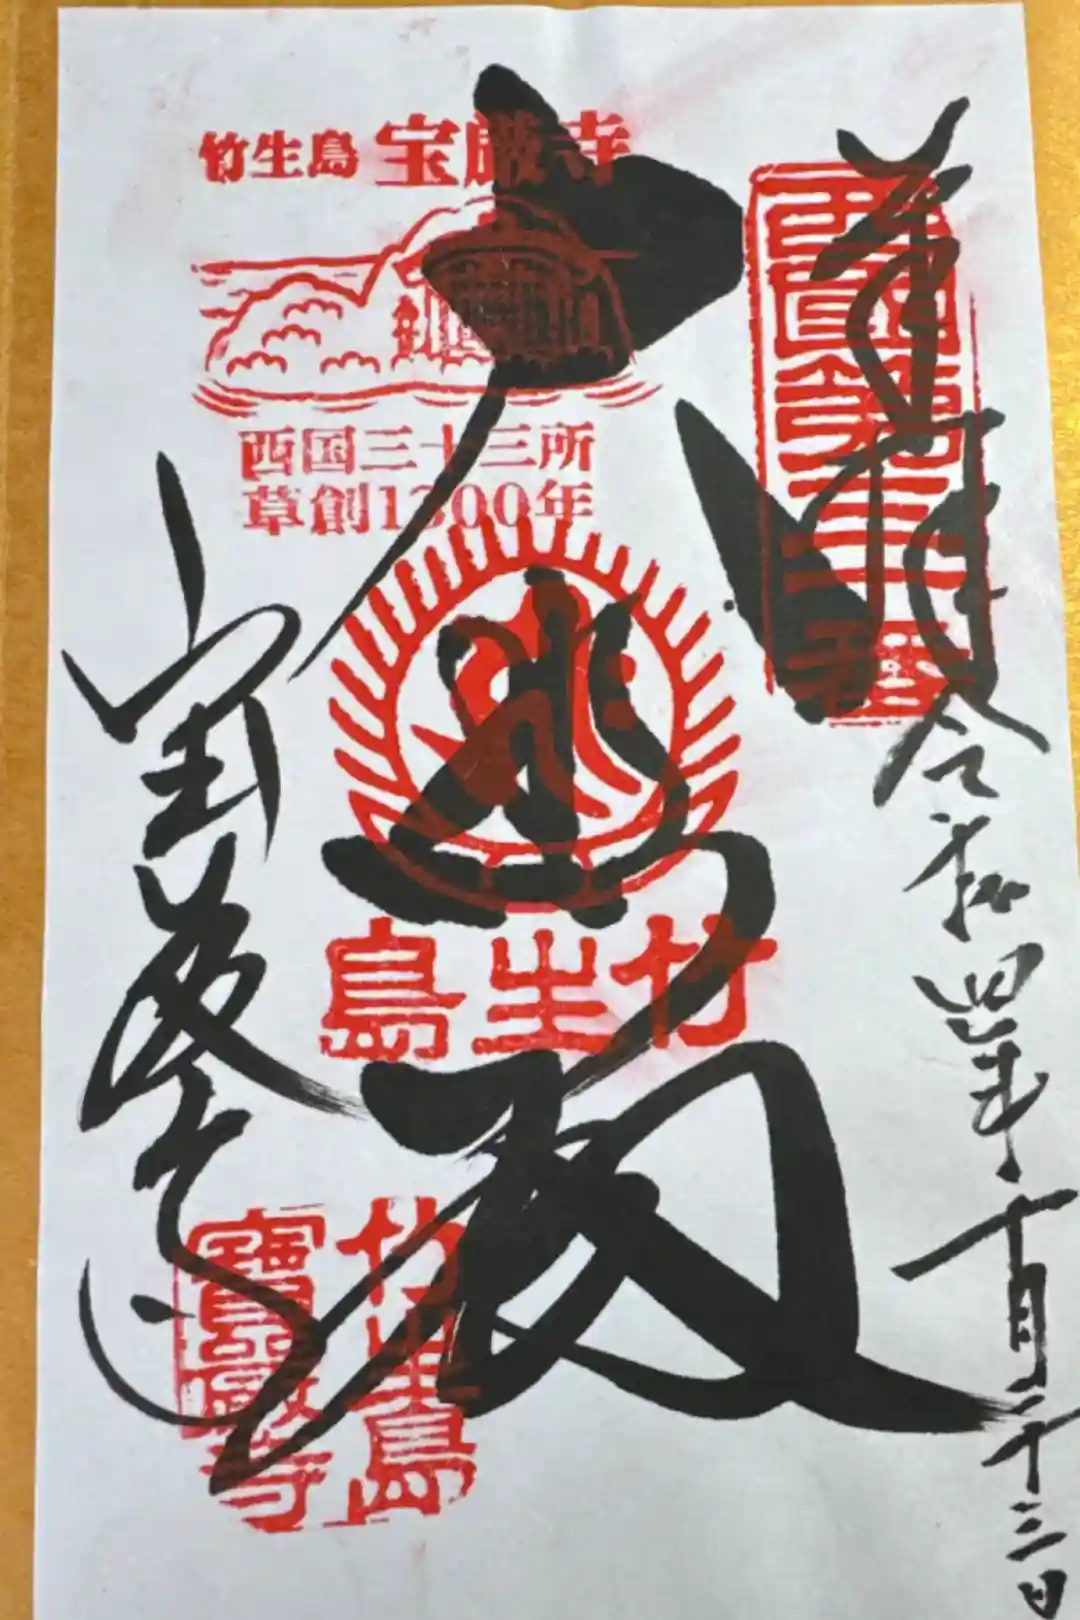 竹生島 宝厳寺
西国三十三所
草創1300年
西國第三十番
奉拝
令和四年十月二十三日
大悲殿
竹生島
宝厳寺
竹生島
寶嚴寺